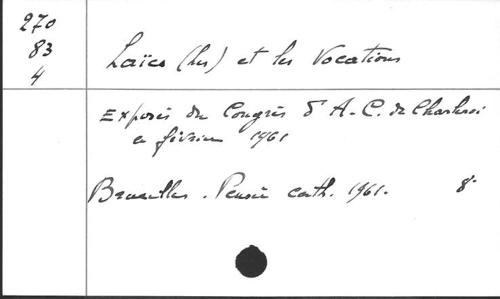 270
83
4
Laïcs (Les) et les Vocations
Exposés du Congrès d'A.-C. de Charleroi
en février 1961
Bruxelles. Pensée cath. 1961. 8°